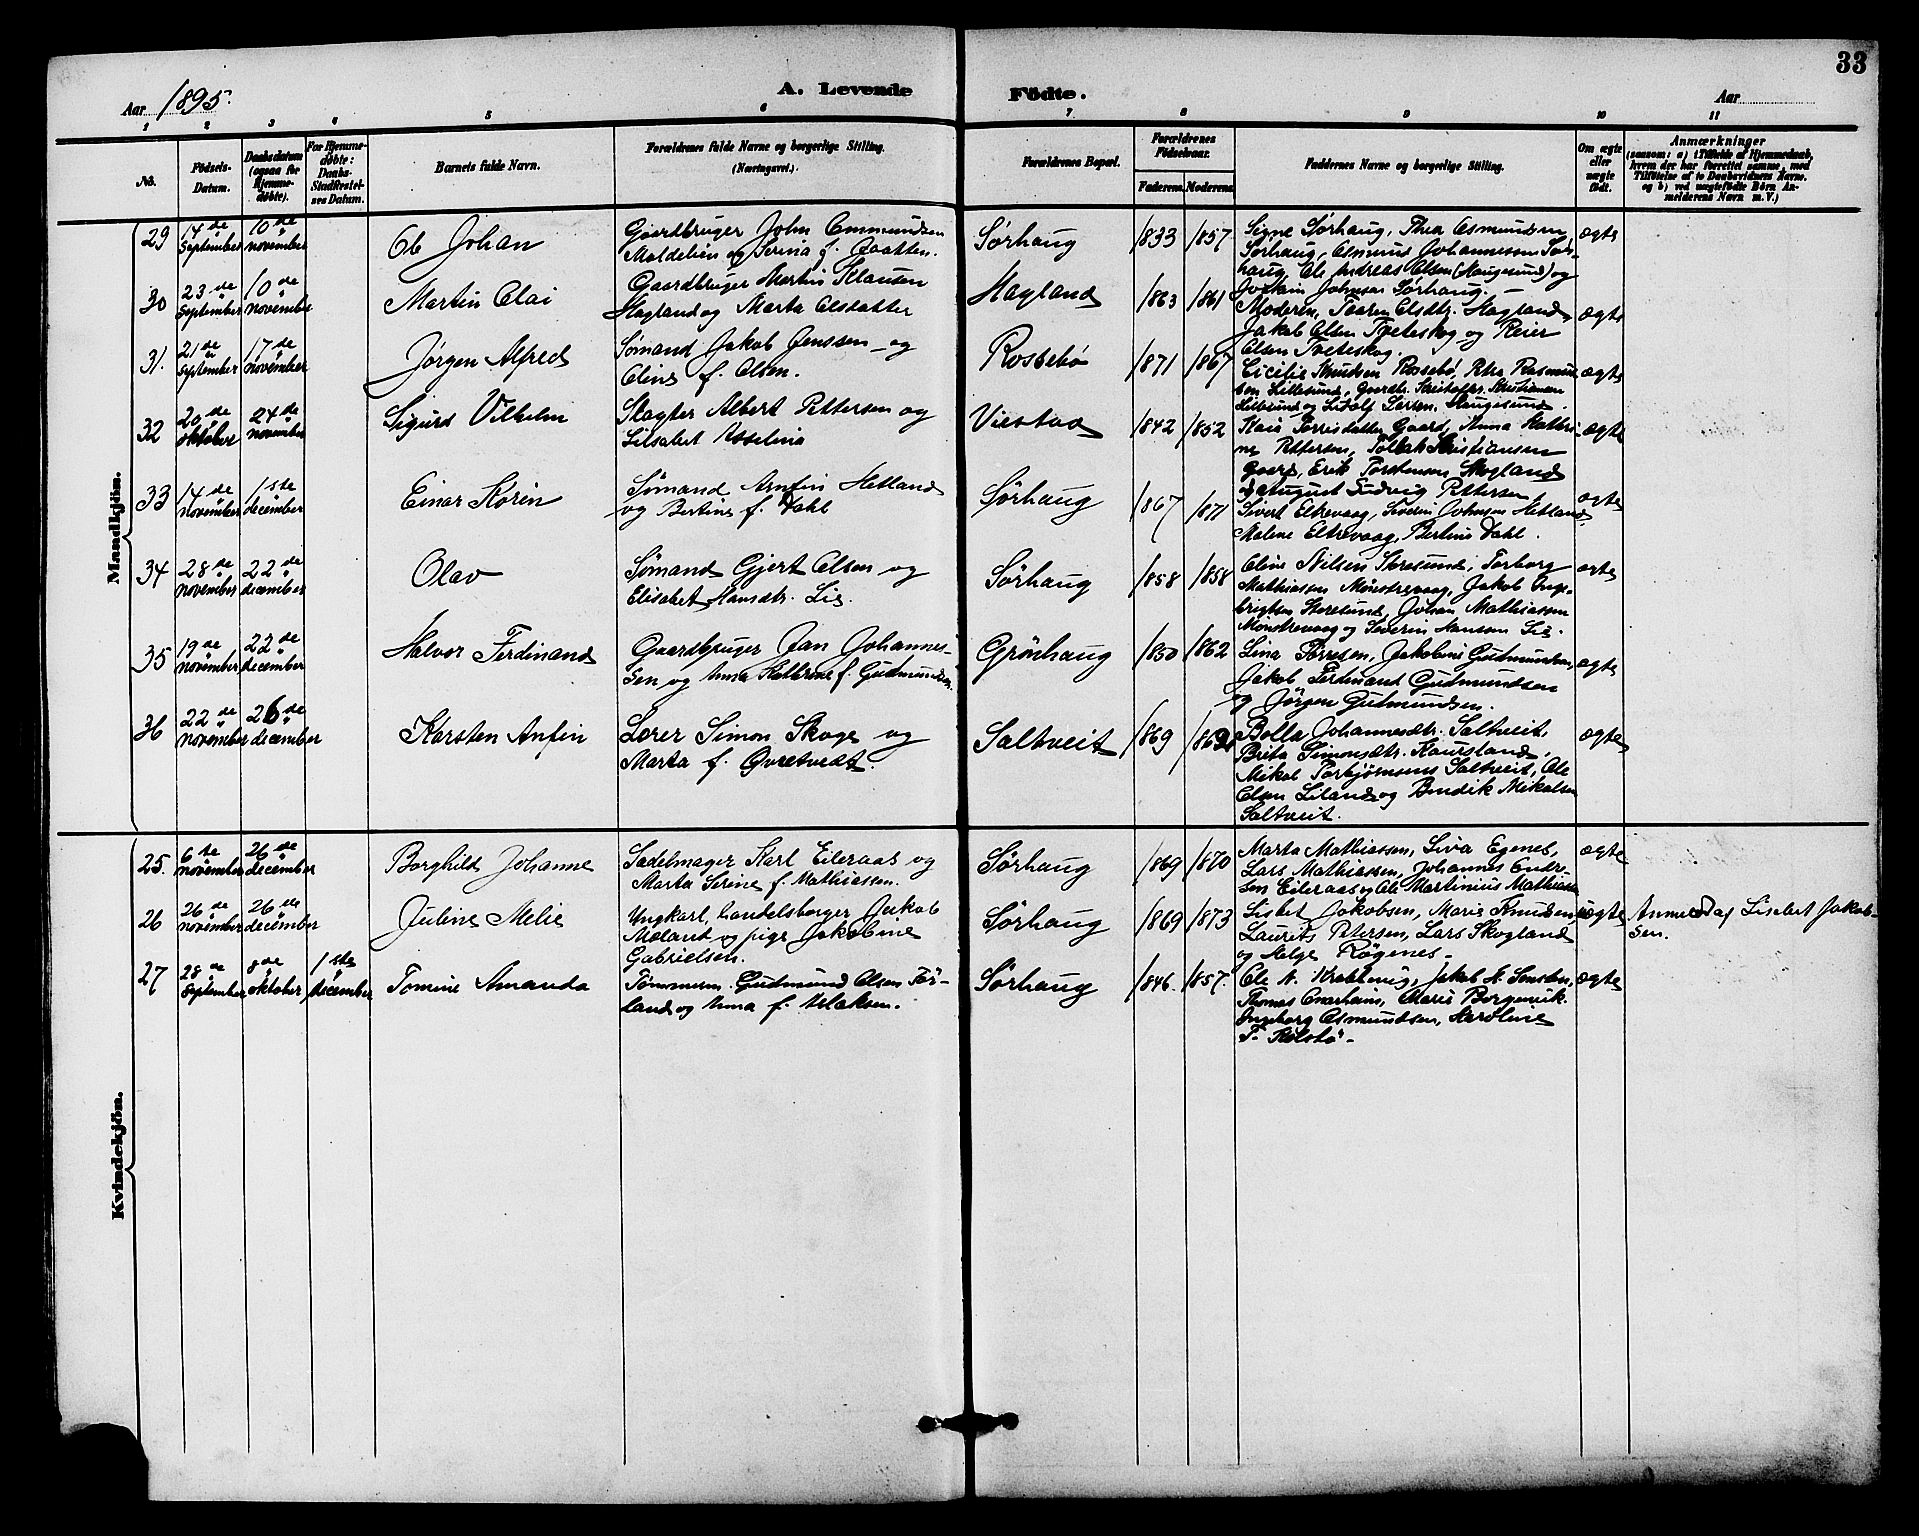 33
Aar 1895.
A. Levende Födte.
Aar
1 2 3 4 5 6 7 8 9 10 11
No.
Födsels-
Datum.
Daabsdatum
(ogsaa for
Hjemme-
döbte).
For Hjemme-
døbte:
Daabs-
Stadfæstel-
ses Datum.
Barnets fulde Navn.
Forældrenes fulde Navne og borgerlige Stilling.
(Næringsvei.)
Forældrenes Bopæl.
Forældrenes
Födselsaar.
Faderens. Moderens.
Faddernes Navne og borgerlige Stilling.
Om ægte
eller
uægte
födt.
Anmærkninger
(saasom: a) i Tilfælde af Hjemmedaab,
hvem der har forrettet samme, med
Tilföielse af to Daabsvidners Navne,
og b) ved uægtefödte Börn An-
melderens Navn m. V.)
Mandkjön.
29 14de September 10de november Ole Johan
Gaardbruger John Ommundsen
Maldeløen og Serina f.
Sørhaug 1833 1857
Signe Sørhaug, Thea Osmundsen
Sørhaug, Osmund Johannessen Sør-
haug, Ole Andreas Olsen (Haugesund) og
Johnsen Sørhaug. —
ægte
30 23de September 10de november Martin Olai
Gaardbruger Martin Klausen
Hagland og Marta Olsdatter
Hagland 1863 1861
Moderen, Taaren Olsdtr. Hagland,
Jakob Olsen Tveteskog og Reier
Olsen Tveteskog.
ægte
31. 21de September 17de november Jørgen Alfred
Sømand Jakob Jenssen og
Oline f. Olsen.
Rossebø 1871 1867
Cicilie Knudsen Rossebø, Peter Rasmus
sen Lillesund, Kristoffer Kristiansen
Lillesund og Lidolf Larsen, Haugesund.
ægte
32 20de oktober 24de november Sigurd Vilhelm
Slagter Albert Pettersen og
Lisabet Roselina
Viestad 1842 1852
Kaia Torrisdatter Gaard, Anna Kathri-
ne Pettersen, Tollak Kristiansen
Gaard, Erik Torstensen Skogland
og August Ludvig Pettersen.
ægte
33 14de november 1ste december Einar Korin
Sømand Arnfin Hetland
og Bertine f. Dahl
Sørhaug 1867 1871
Sivert Eltrevaag, Severin Johnsen Hetland,
Malene Eltrevaag, Bertine Dahl.
ægte
34 28de november 22de december Olav
Sømand Gjert Olsen og
Elisabet Hansdtr. Lie.
Sørhaug 1858 1858
Oline Nilsen Storesund, Torborg
Mathiassen Mønstrevaag, Jakob Inge-
brigtsen Storesund, Johan Mathiassen
Mønstrevaag og Severin Hansen Lie.
ægte
35 19de november 22de december Halvor Ferdinand
Gaardbruger Jan Johannes-
sen og Anna Kathrine f. Gudmundsen.
Grønhaug 1850 1862
Lina Tørresen, Jakobine Gudmundsen,
Jakob Ferdinand Gudmundsen
og Jørgen Gudmundsen.
ægte
36 22de november 26de december Karsten Anfin
Lærer Simon Skoge og
Marta f. Øvretvedt.
Saltveit 1869
Bolla Johannesdtr. Saltveit,
Brita Simonsdtr. Kaursland,
Mikal Torbjørnsens Saltveit, Ole
Olsen Liland og Bendik Mikalsen
Saltveit.
ægte
Kvindekjön.
25. 6te november 26de december Borghild Johanne
Sadelmager Karl Eileraas og
Marta Serine f. Mathiassen.
Sørhaug 1869 1870
Marta Mathiassen, Siva Egenes,
Lars Mathiassen, Johannes Endre-
sen Eileraas og Ole Martinius Mathias
ægte
26 26de november 26de december Juline Melie
Ungkarl, handelsborger Jakob
Mølaret og pige Jakobine
Gabrielsen.
Sørhaug 1869 1873
Lisbet Jakobsen, Marie Knudsen
Laurits Petersen, Lars Skogland
og Helge Røgenes-
uægte
Anmeldt af Lisbet Jakob-
sen.
27 28de September 8de oktober 1ste december Tomine Amanda
Tømmerm. Gudmund Olsen Før-
land og Anna f. Isaksen.
Sørhaug 1846. 1857.
Ole A. Krabbevig, Jakob A.
Thomas Marie Borgenvik.
Ingeborg Osmundsen, Karoline
T. Kolstø -
ægte